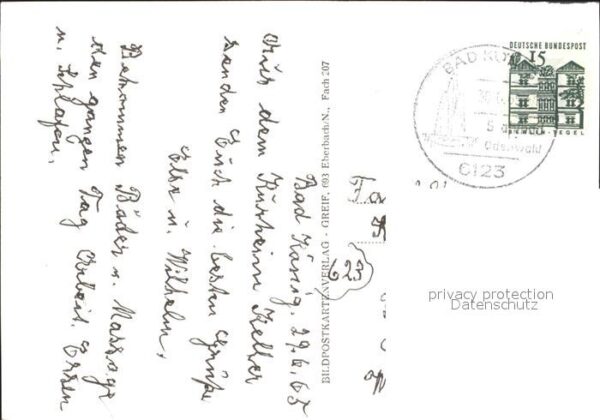 Bad König, 29.6.65
Aus dem Kurheim Keller
senden Euch die besten Grüße
Else u. Wilhelm,
Bekommen Bäder u. Massage
den ganzen Tag Arbeit. Essen
u. Schlafen.
BILDPOSTKARTENVERLAG - GREIF, 693 Eberbach/N., Fach 207
623
DEUTSCHE BUNDESPOST
15
BERLIN-TEGEL
BAD KÖNIG
Odenwald
6123
privacy protection
Datenschutz